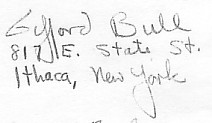 Gifford Bull
817 E. State St.
Ithaca, New York